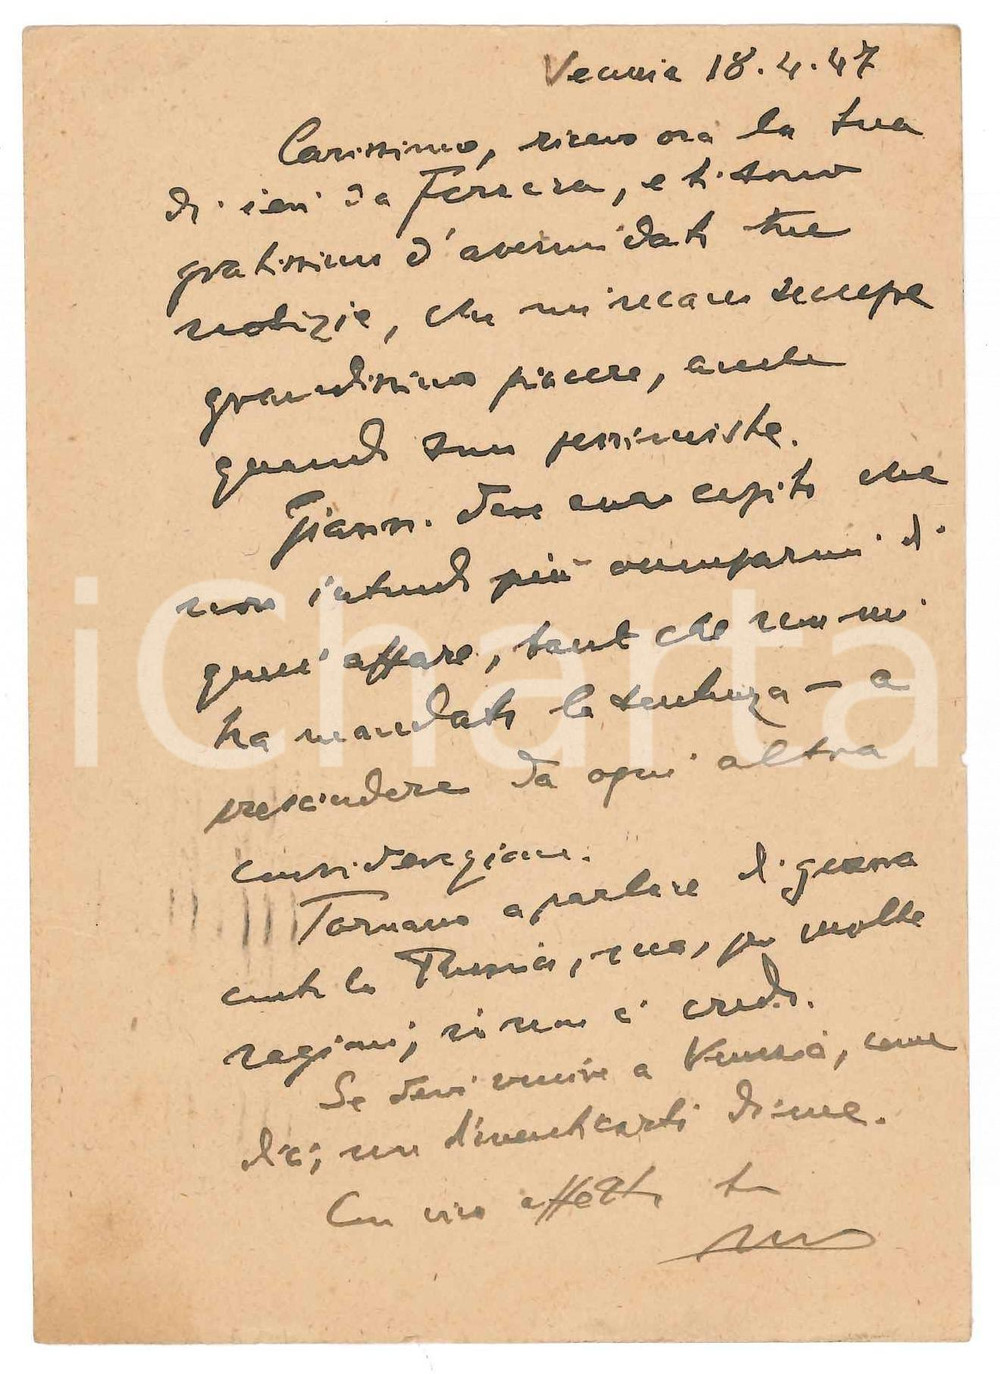 Venezia 18.4.47
Carissimo, ricevo ora la tua
di ieri da Ferrara, e ti sono
gratissimo d'avermi dato tue
notizie, che mi recano sempre
grandissimo piacere, anche
quando sono pessimiste.
deve aver capito che
non intendo più occuparmi di
quell'affare, tant'è che non mi
ha mandato la sentenza - a
prescindere da ogni altra
considerazione.
Tornano a parlare di guerra
contro la Russia, ma, per molte
ragioni, io non ci credo.
Se devi venire a Venezia, come
dici, non dimenticarti di me.
Con vivo affetto tuo
iCharta